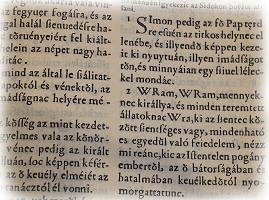 fegyuer fogásra, és az
gal halál sententzására
törueniyért fel kiált-
helein az népet nagy ha
mind az által le siállitatt
apoktól és vénektől, az
mádságnac helyére mé-
kösség az mint kezdet-
gyelmes vala az könör-
vénec pedig az kiralt
illuán, soc képpen késér-
az ő keuély elméiét az
tanácztól el vonni.
1 SImon pedig az fő Pap terd
re esuén az titkos helynec el-
lenébe, és illyendő képpen kezei-
it ki nyuytuán, illyen imádságot
tőn, és minnyáian egy siiuel lélec-
kel mondác.
2 WRam, WRam, mennyek-
nec királlya, és minden teremtett
állatoknac Wra, ki az sientec kö-
zött sientséges vagy, mindenható
es egyedül való feiedelem, nézz
mi reánc, kic az Istentelen pogány
embertől, az ő bátorságában és
hatalmában keuélkedőtől nyo-
morgattatunc.